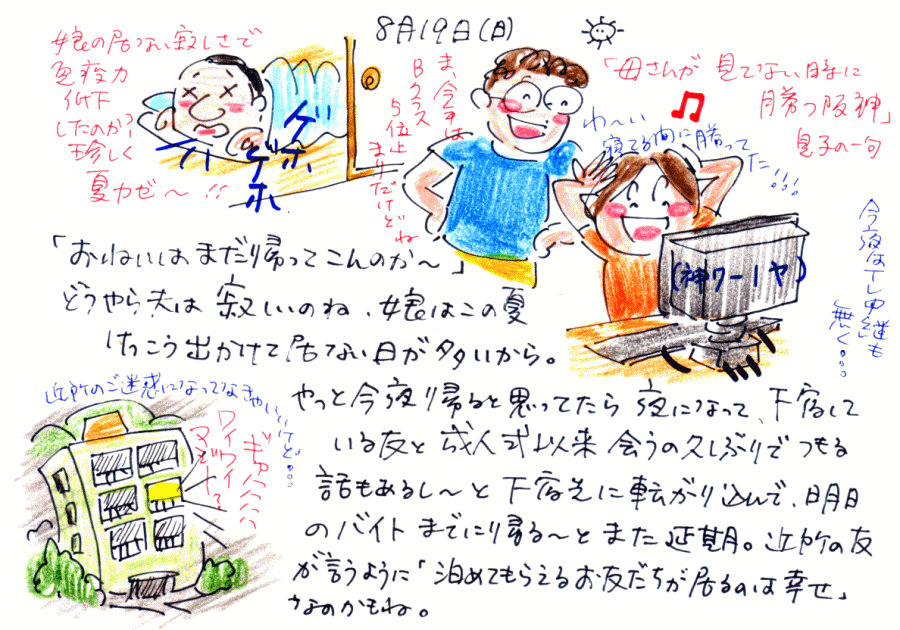 8月19日(日)
娘の居ない寂しさで
免疫力
低下
したのか?
珍しく
夏カゼ〜!!
ゲホ
ゲホ
ま、今年は
Bクラス
5位止
まりだけどね
「母さんが見てない時に
勝つ阪神」
息子の一句
わ〜い
寝てる間に勝って
た!!!
今夜はTV中継も
無く。。。
「おねいはまだ帰ってこんのか〜」
どうやら夫は寂しいのね、娘はこの夏
けっこう出かけて居ない日が多いから。
やっと今夜帰ると思ってたら夜になって、下宿して
いる友と成人式以来会うの久しぶりでつもる
話もあるし〜と下宿先に転がり込んで、明日
のバイトまでに帰る〜とまた延期。近所の友
が言うように「泊めてもらえるお友だちが居るのは幸せ」
なのかもね。
近所のご迷惑になってなきゃいいけど。。。
ギャハハハ
ワイワイ